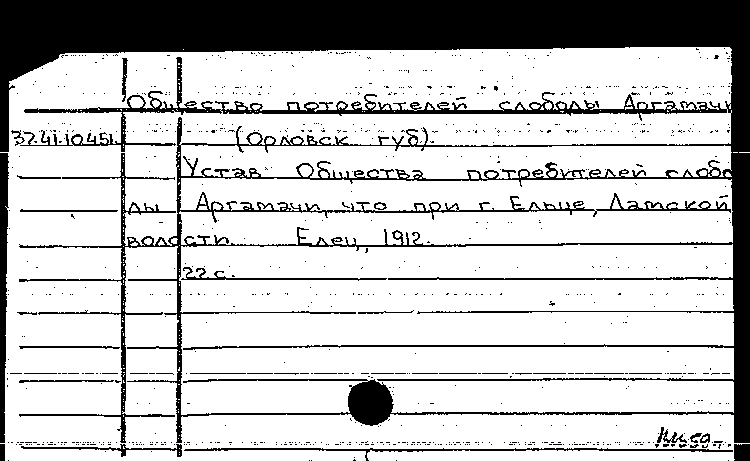 Общество потребителей слободы Аргамачи
37.41.10.451. (Орловск. губ).
Устав Общества потребителей слобо
ды Аргамачи, что при г. Ельце, Ламской
волости. Елец, 1912.
22 с.